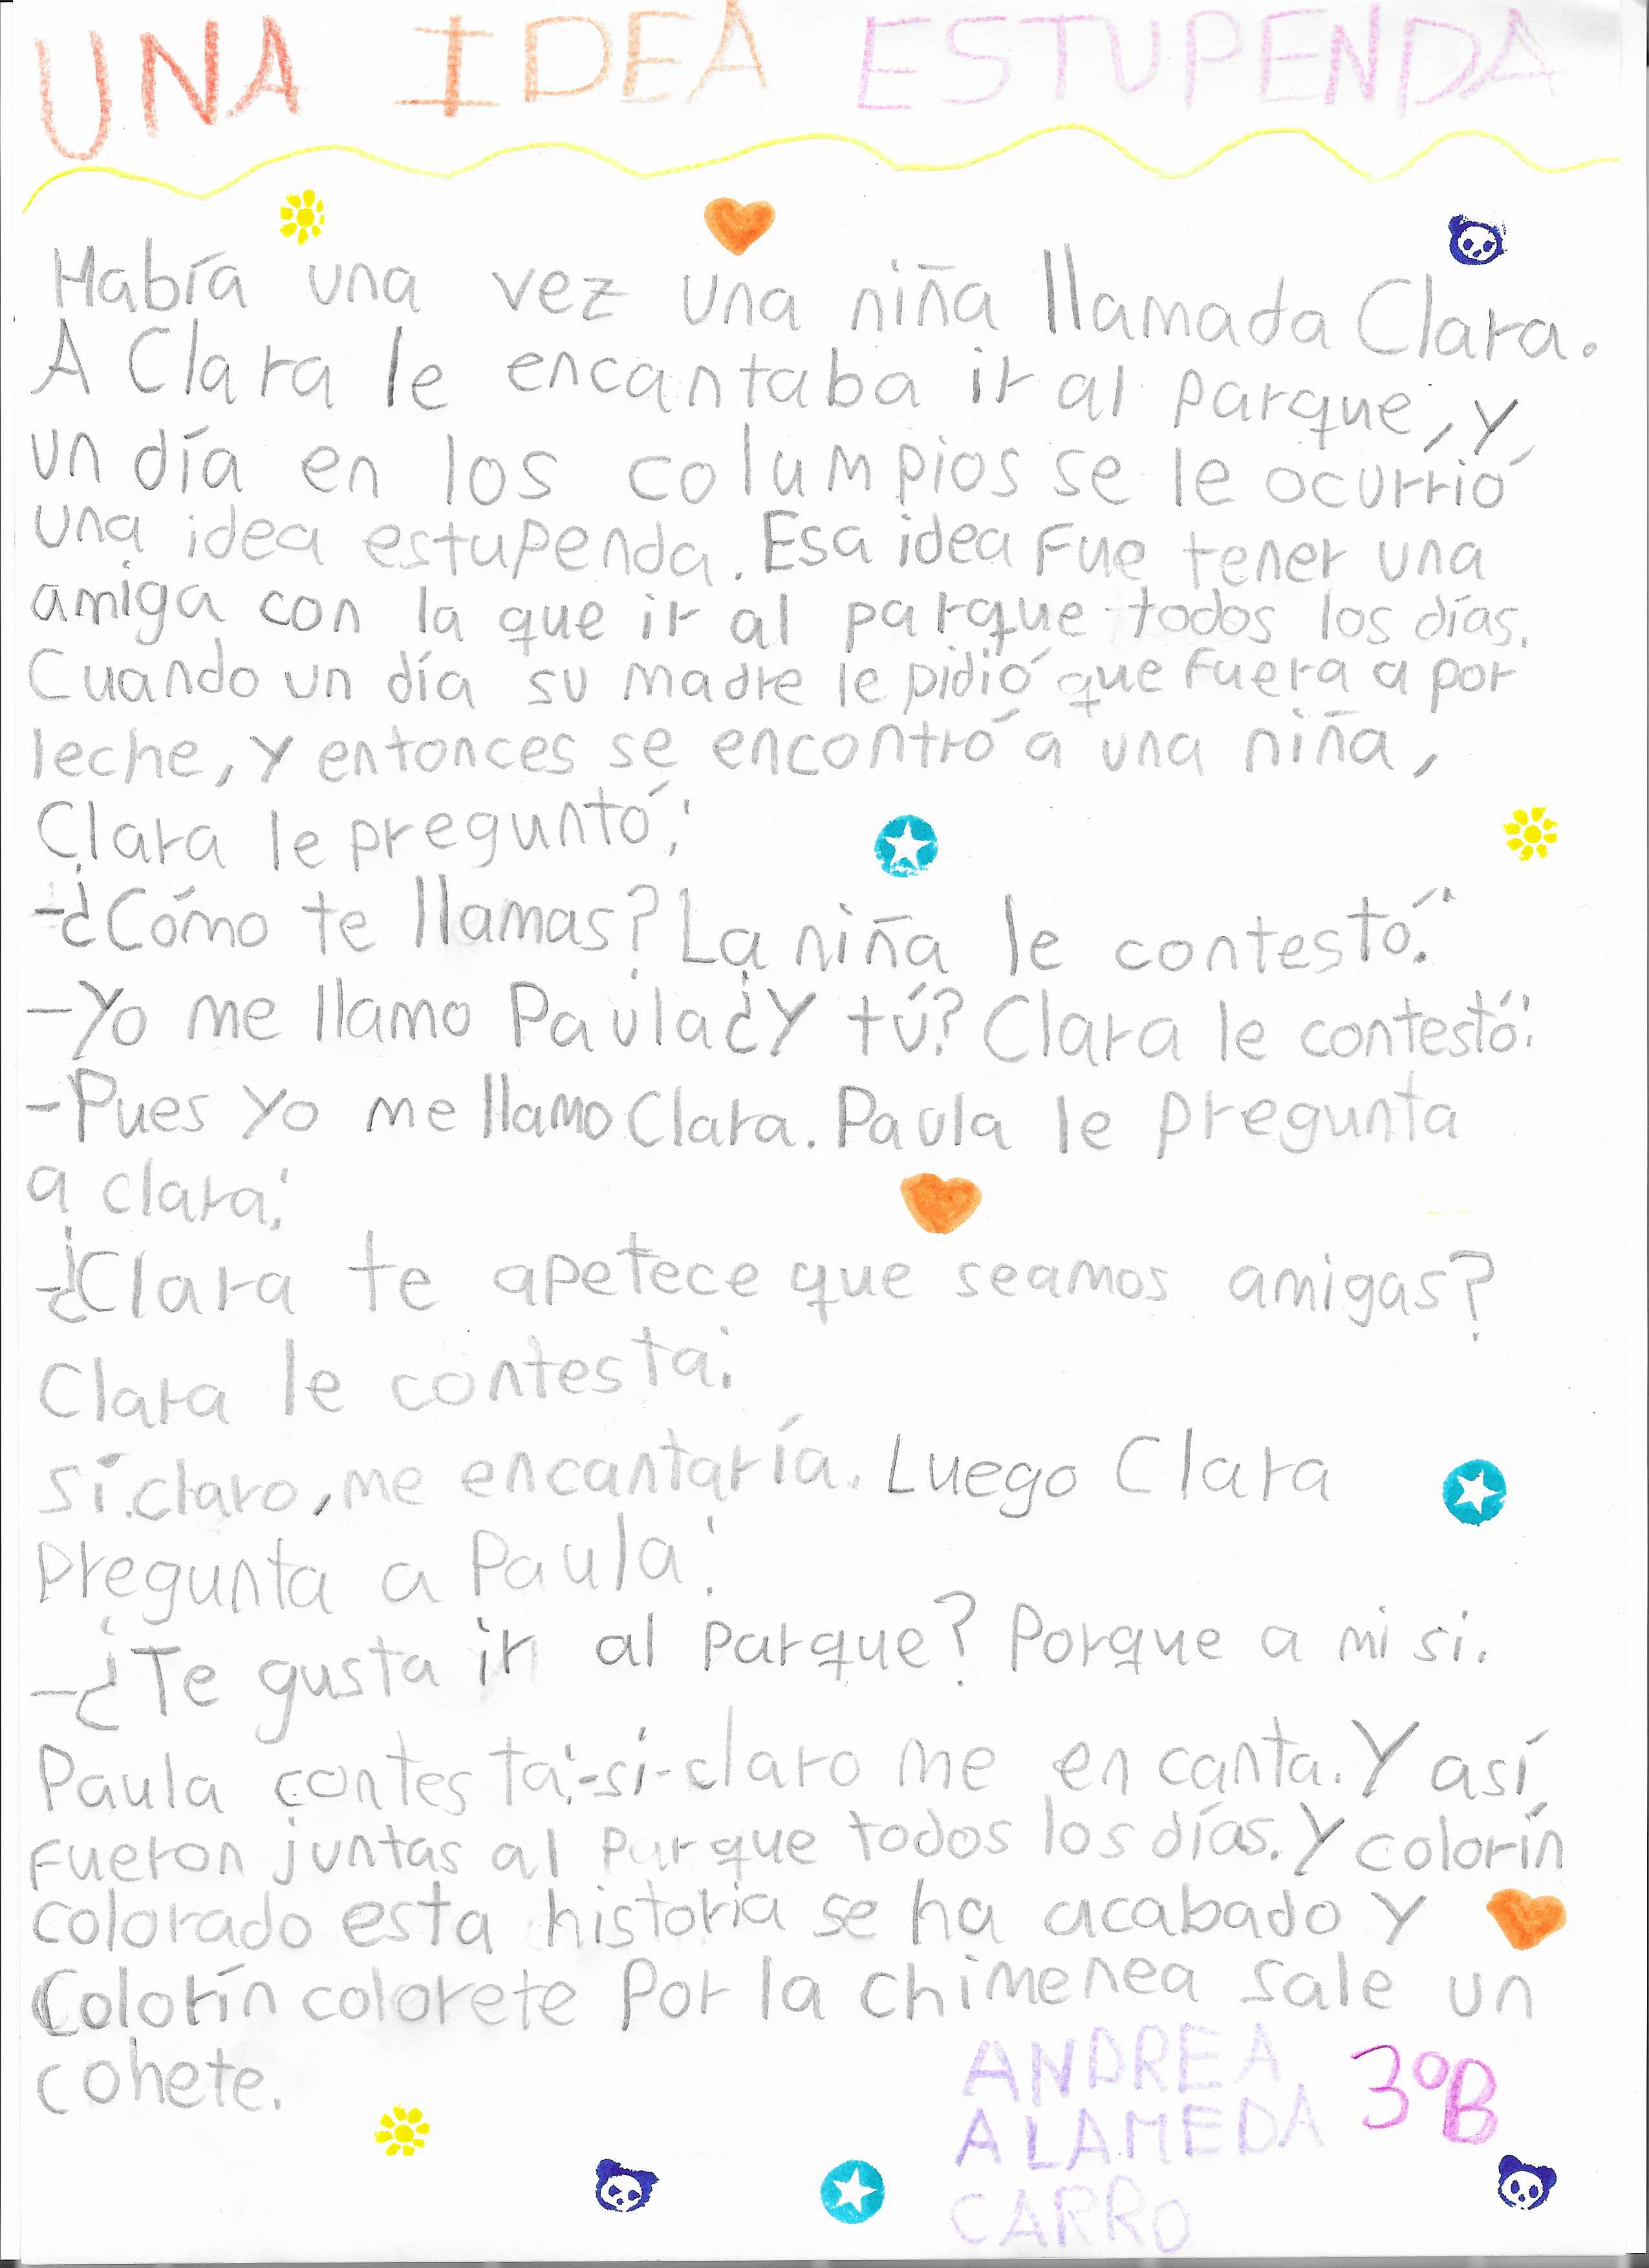 UNA IDEA ESTUPENDA
Había una vez una niña llamada Clara.
A Clara le encantaba ir al parque, y
un día en los columpios se le ocurrió
una idea estupenda. Esa idea fue tener una
amiga con la que ir al parque todos los días.
Cuando un día su madre le pidió que fuera a por
leche, y entonces se encontró a una niña,
Clara le preguntó:
-¿Cómo te llamas? La niña le contestó:
-Yo me llamo Paula ¿Y tú? Clara le contestó:
-Pues yo me llamo Clara. Paula le pregunta
a clara:
-¿Clara te apetece que seamos amigas?
Clara le contesta:
sí claro, me encantaría. Luego Clara
pregunta a Paula:
-¿Te gusta ir al parque? Porque a mi si.
Paula contesta:-si-claro me encanta. Y así
fueron juntas al parque todos los días. Y colorín
colorado esta historia se ha acabado y
Colorín colorete por la chimenea sale un
cohete.
ANDREA
ALAMEDA
CARRO
3ºB